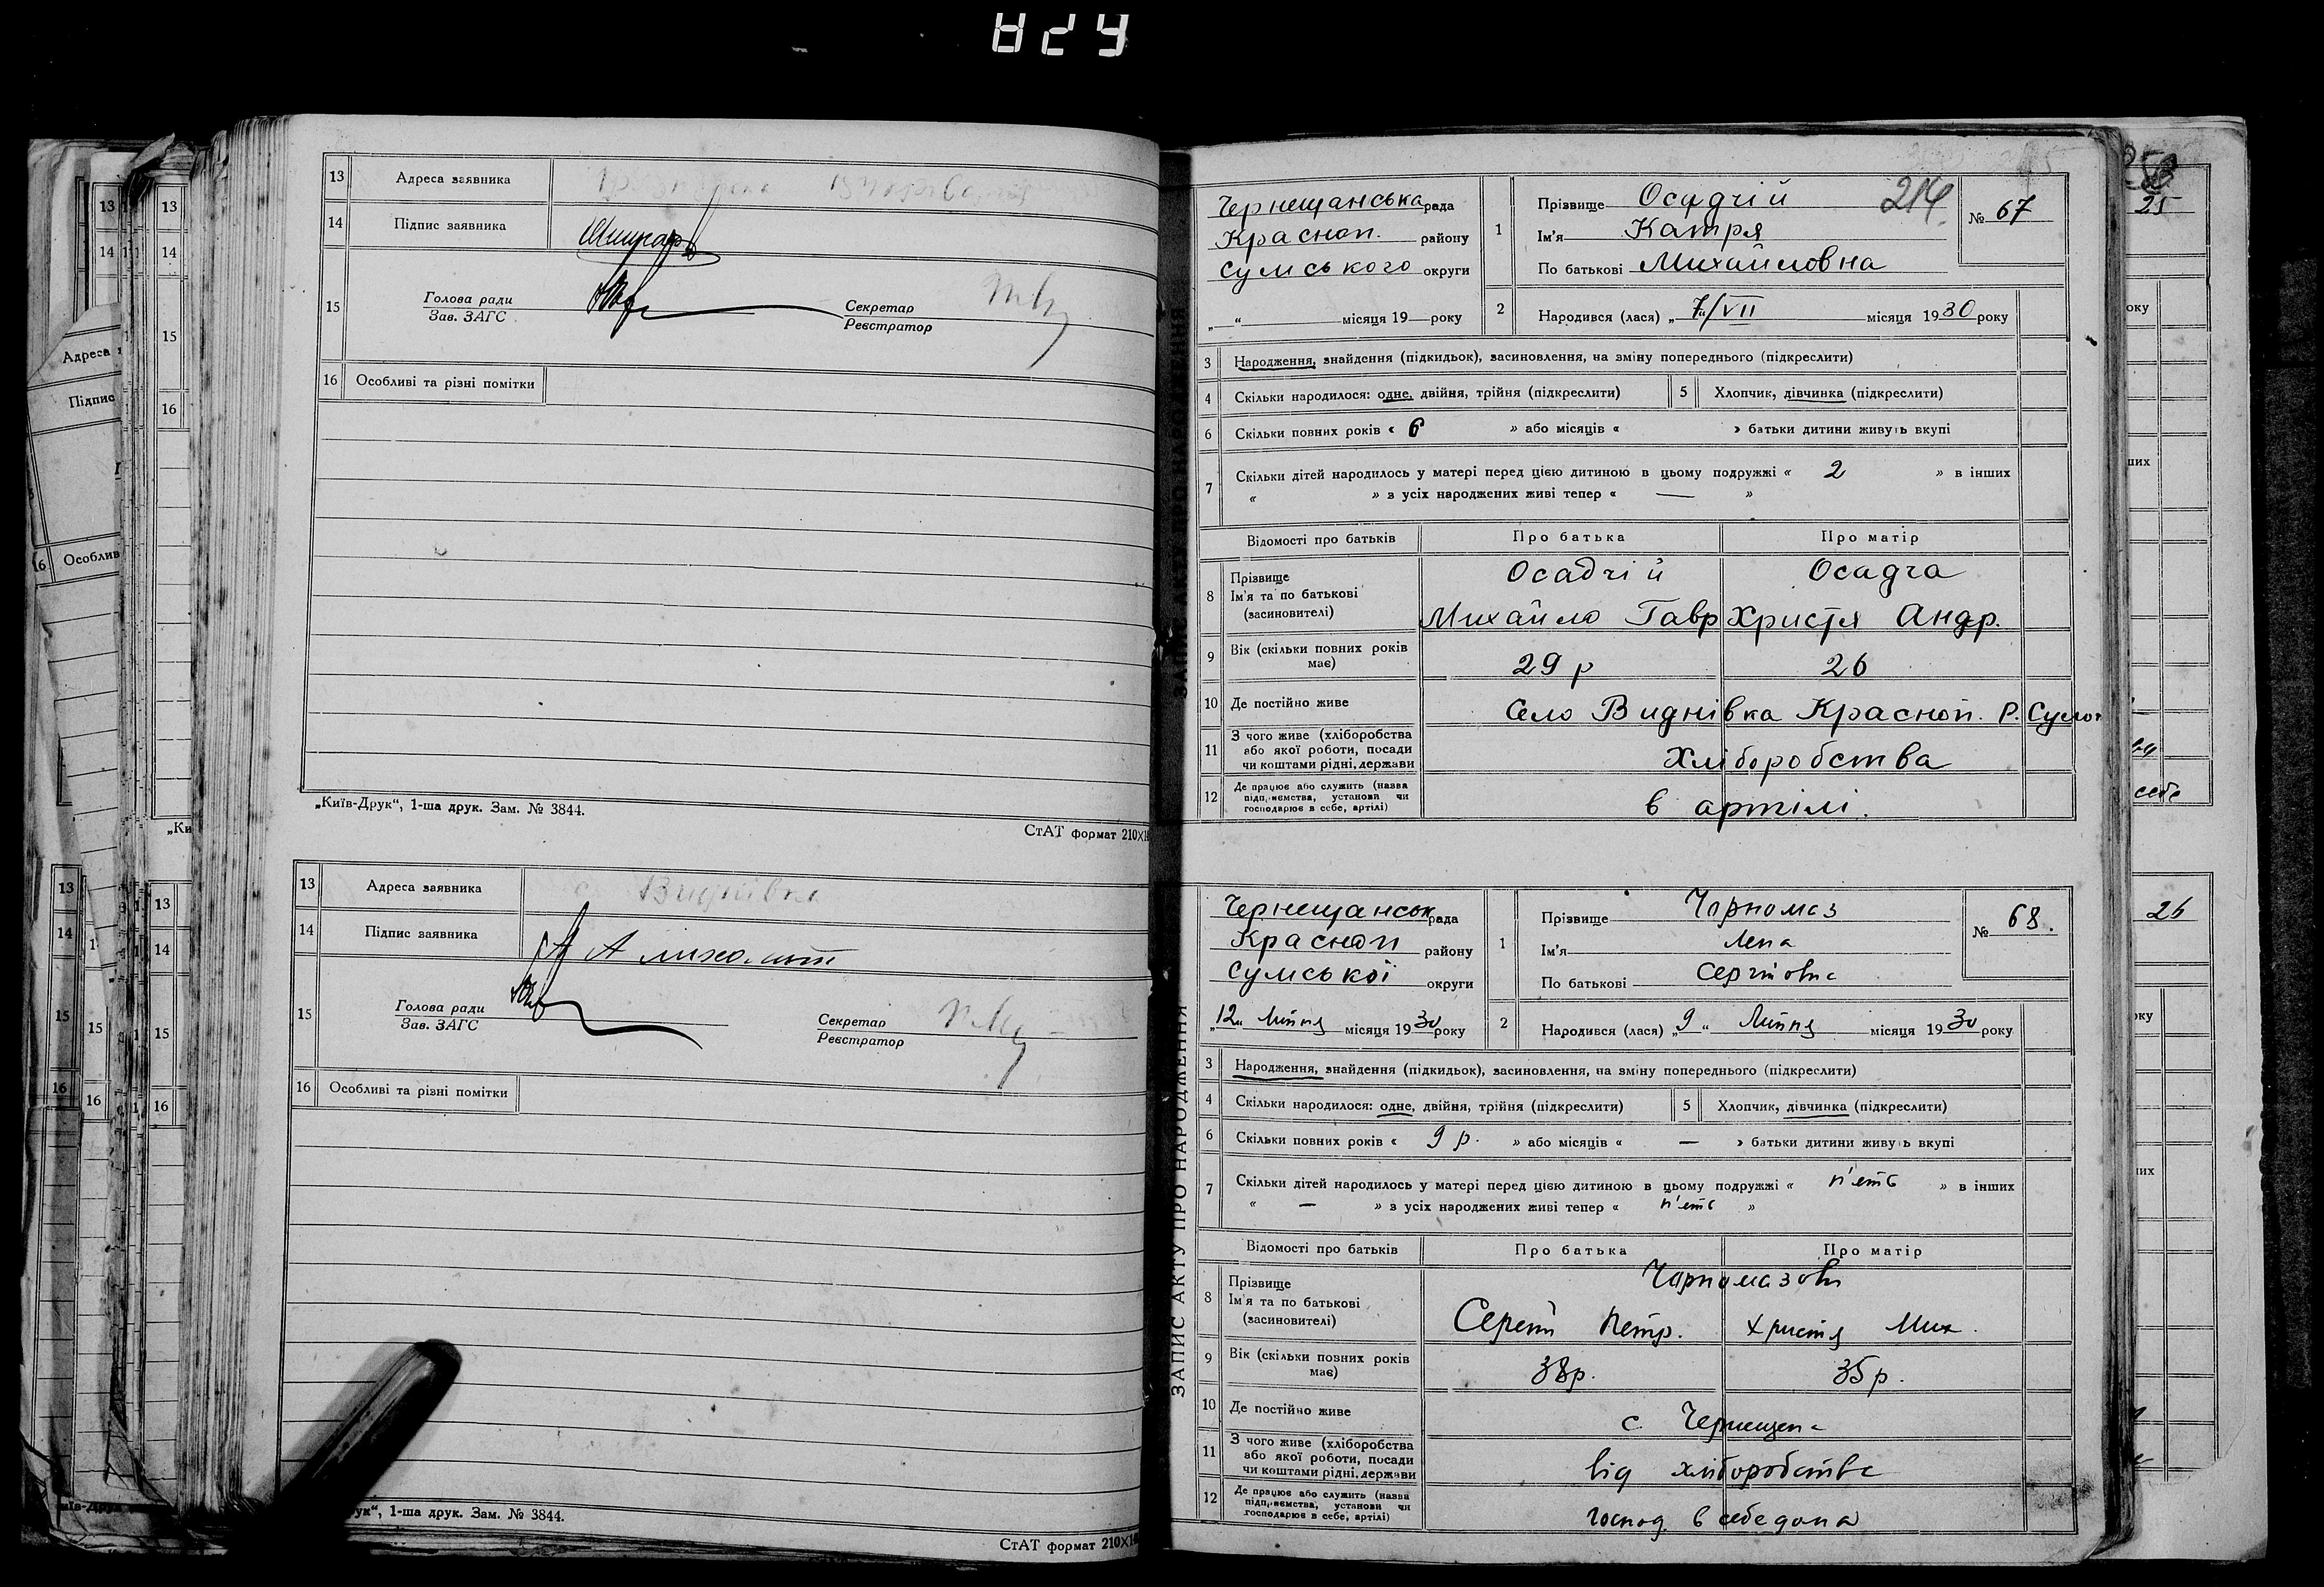 13 Адреса заявника
14 Підпис заявника
15 Голова ради
Зав. ЗАГС
Секретар
Реєстратор
16 Особливі та різні помітки
„Київ-Друк“, 1-ша друк. Зам. № 3844.
СтАТ формат 210×1
13 Адреса заявника
14 Підпис заявника
15 Голова ради
Зав. ЗАГС
Секретар
Реєстратор
16 Особливі та різні помітки
ук“, 1-ша друк. Зам. № 3844.
СтАТ формат 210×1
214
Чернещанська рада
Красноп. району
Сумського округи
„ “ місяця 19 року
1 Прізвище Осадчій
Ім'я Катря
По батькові Михайловна
№ 67
2 Народився (лася) „7“/VII місяця 1930 року
3 Народження, знайдення (підкидьок), засиновлення, на зміну попереднього (підкреслити)
4 Скільки народилося: одне, двійня, трійня (підкреслити) 5 Хлопчик, дівчинка (підкреслити)
6 Скільки повних років « 6 » або місяців « » батьки дитини живуть вкупі
7 Скільки дітей народилось у матері перед цією дитиною в цьому подружжі « 2 » в інших
« » з усіх народжених живі тепер « — »
Відомості про батьків Про батька Про матір
8 Прізвище
Ім'я та по батькові
(засиновителі)
Осадчій Осадча
Михайло Гавр Христя Андр.
9 Вік (скільки повних років має) 29 р 26
10 Де постійно живе Село Виднівка Красноп. Р. Сумо
11 З чого живе (хліборобства
або якої роботи, посади
чи коштами рідні, держави
Хліборобства
12 Де працює або служить (назва
підприємства, установи чи
господарює в себе, артілі)
в артілі.
ЗАПИС АКТУ ПРО НАРОДЖЕННЯ
Чернещанськ рада
Красноп району
Сумської округи
„12“ Липня місяця 1930 року
1 Прізвище Чорномаз
Ім'я Лена
По батькові Сергіїовна
№ 68.
2 Народився (лася) „9“ Липня місяця 1930 року
3 Народження, знайдення (підкидьок), засиновлення, на зміну попереднього (підкреслити)
4 Скільки народилося: одне, двійня, трійня (підкреслити) 5 Хлопчик, дівчинка (підкреслити)
6 Скільки повних років « 9 р. » або місяців « — » батьки дитини живуть вкупі
7 Скільки дітей народилось у матері перед цією дитиною в цьому подружжі « п'еть » в інших
« — » з усіх народжених живі тепер « п'еть »
Відомості про батьків Про батька Про матір
8 Прізвище
Ім'я та по батькові
(засиновителі)
Чорномазови
Сергій Петр. Христя Мих.
9 Вік (скільки повних років має) 38р. 35р.
10 Де постійно живе с. Чернещена
11 З чого живе (хліборобства
або якої роботи, посади
чи коштами рідні, держави
від хліборобства
12 Де працює або служить (назва
підприємства, установи чи
господарює в себе, артілі)
господ. в себе дома
25
26